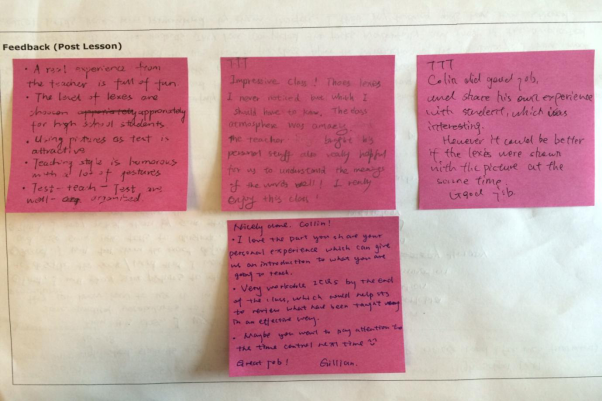 Feedback (Post Lesson)
• A real experience from
the teacher is full of fun
• The level of lexes are
chosen appropriately
for high school students
• Using pictures as text is
attractive
• Teaching style is humorous
with a lot of gestures
• Test-teach-Test are
well- organized.
TTT
Impressive Class! Those lexes
I never noticed but which I
should have to know. The class
atmosphere was amazing
the teacher
personal stuff also really helpful
for us to understand the meanings
of the words well! I really
enjoy this class!
TTT
Colin did good job,
and share his own experience
with student, which was
interesting.
However it could be better
if the lexes were shown
with the picture at the
same time.
Good job.
Nicely done, Collin!
• I love the part you share your
personal experience which can give
us an introduction to what you are
going to teach.
• Very workable ICQs by the end
of the class, which would help sts
to review what have been taught
in an effective way.
• Maybe you want to pay attention to
the time control next time
Great job! Gillian.